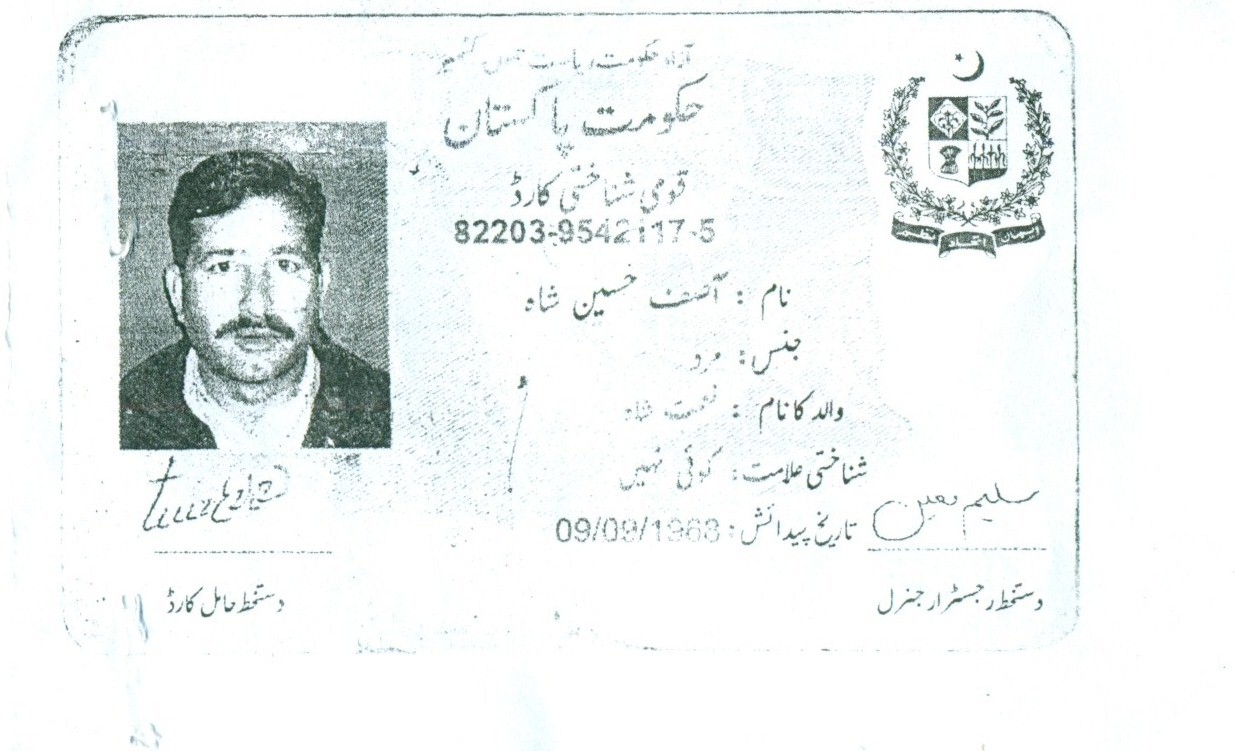 آزاد حکومت ریاست جموں کشمیر
حکومت پاکستان
قومی شناختی کارڈ
82203-9542117-5
نام : آصف حسین شاہ
جنس: مرد
والد کا نام : نعمت شاہ
شناختی علامت: کوئی نہیں
تاریخ پیدائش: 09/09/1968
سلیم معین
دستخط حامل کارڈ
دستخط رجسٹرار جنرل